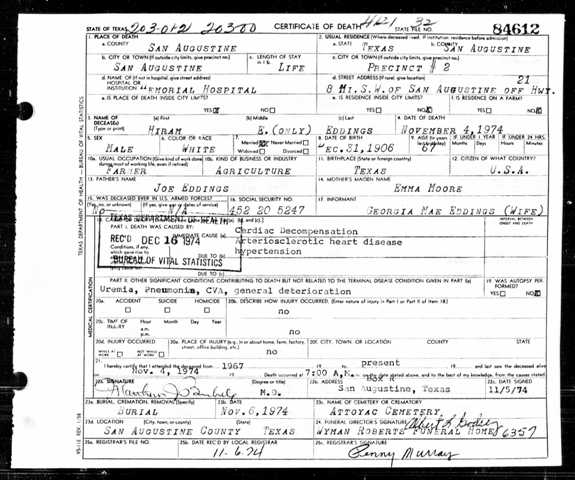 STATE OF TEXAS 203.0+2 20300 CERTIFICATE OF DEATH STATE FILE NO. 84612
1. PLACE OF DEATH
a. COUNTY
SAN AUGUSTINE
2. USUAL RESIDENCE (Where deceased lived. If institution: residence before admission)
a. STATE
TEXAS
b. COUNTY
SAN AUGUSTINE
b. CITY OR TOWN (If outside city limits, give precinct no.)
SAN AUGUSTINE
c. LENGTH OF STAY in 1b
LIFE
c. CITY OR TOWN (If outside city limits, give precinct no.)
PRECINCT # 2
d. NAME OF (If not in hospital, give street address)
HOSPITAL OR
INSTITUTION MEMORIAL HOSPITAL
d. STREET ADDRESS (If rural, give location) 21
8 MI. S.W. OF SAN AUGUSTINE OFF HWY.
e. IS PLACE OF DEATH INSIDE CITY LIMITS?
YES NO
e. IS RESIDENCE INSIDE CITY LIMITS?
YES NO
f. IS RESIDENCE ON A FARM?
YES NO
3. NAME OF DECEASED
(a) First
HIRAM
(b) Middle
E. (ONLY)
(c) Last
EDDINGS
4. DATE OF DEATH
NOVEMBER 4, 1974
5. SEX
MALE
6. COLOR OR RACE
WHITE
7. Married Never Married
Widowed Divorced
8. DATE OF BIRTH
DEC. 31, 1906
9. AGE
67
IF UNDER 1 YEAR
Months Days
IF UNDER 24 HRS.
Hours Min.
10a. USUAL OCCUPATION (Give kind of work done during most of working life, even if retired)
FARMER
10b. KIND OF BUSINESS OR INDUSTRY
AGRICULTURE
11. BIRTHPLACE (State or foreign country)
TEXAS
12. CITIZEN OF WHAT COUNTRY?
U.S.A.
13. FATHER'S NAME
JOE EDDINGS
14. MOTHER'S MAIDEN NAME
EMMA MOORE
15. WAS DECEASED EVER IN U.S. ARMED FORCES?
(Yes, no, or unknown) (If yes, give war or dates of service)
NO N/A
16. SOCIAL SECURITY NO.
452 20 5247
17. INFORMANT
GEORGIA MAE EDDINGS (WIFE)
TEXAS DEPARTMENT OF HEALTH
REC'D DEC 16 1974
BUREAU OF VITAL STATISTICS
PART I. DEATH WAS CAUSED BY:
IMMEDIATE CAUSE (a)
Cardiac Decompensation
INTERVAL BETWEEN ONSET AND DEATH
DUE TO (b)
Arteriosclerotic heart disease
hypertension
DUE TO (c)
PART II. OTHER SIGNIFICANT CONDITIONS CONTRIBUTING TO DEATH BUT NOT RELATED TO THE TERMINAL DISEASE CONDITION GIVEN IN PART I(a)
Uremia, Pneumonia, CVA, general deterioration
19. WAS AUTOPSY PERFORMED?
YES NO
20a. ACCIDENT SUICIDE HOMICIDE
20b. DESCRIBE HOW INJURY OCCURRED. (Enter nature of injury in Part I or Part II of item 18.)
no
20c. TIME OF INJURY Hour Month Day Year
a.m.
p.m.
no
20d. INJURY OCCURRED
WHILE AT WORK NOT WHILE AT WORK
20e. PLACE OF INJURY (e.g., in or about home, farm, factory, street, office building, etc.)
no
20f. CITY, TOWN, OR LOCATION COUNTY STATE
21. I hereby certify that I attended the deceased from 1967 to present and last saw the deceased alive
Nov. 4, 1974 Death occurred at 7:00 A.M. on the date stated above, and to the best of my knowledge, from the causes stated.
22a. SIGNATURE (Degree or title)
M.D.
22b. ADDRESS
San Augustine, Texas
22c. DATE SIGNED
11/5/74
23a. BURIAL, CREMATION, REMOVAL (Specify)
BURIAL
23b. DATE
NOV. 6, 1974
23c. NAME OF CEMETERY OR CREMATORY
ATTOYAC CEMETERY
23d. LOCATION (City, town, or county) (State)
SAN AUGUSTINE COUNTY TEXAS
24. FUNERAL DIRECTOR'S SIGNATURE
WYMAN ROBERTS FUNERAL HOME 6357
25a. REGISTRAR'S FILE NO.
25b. DATE REC'D BY LOCAL REGISTRAR
11-6-74
25c. REGISTRAR'S SIGNATURE
Penny Murray
TEXAS DEPARTMENT OF HEALTH — BUREAU OF VITAL STATISTICS
MEDICAL CERTIFICATION